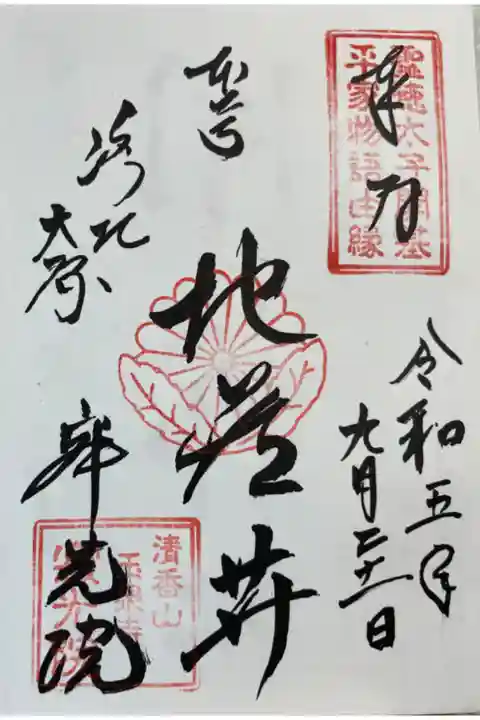 奉拝
聖徳太子開基
平家物語由縁
令和五年
九月二十一日
本尊
地蔵菩薩
洛北
大原
寂光院
清香山
玉泉寺
寂光院